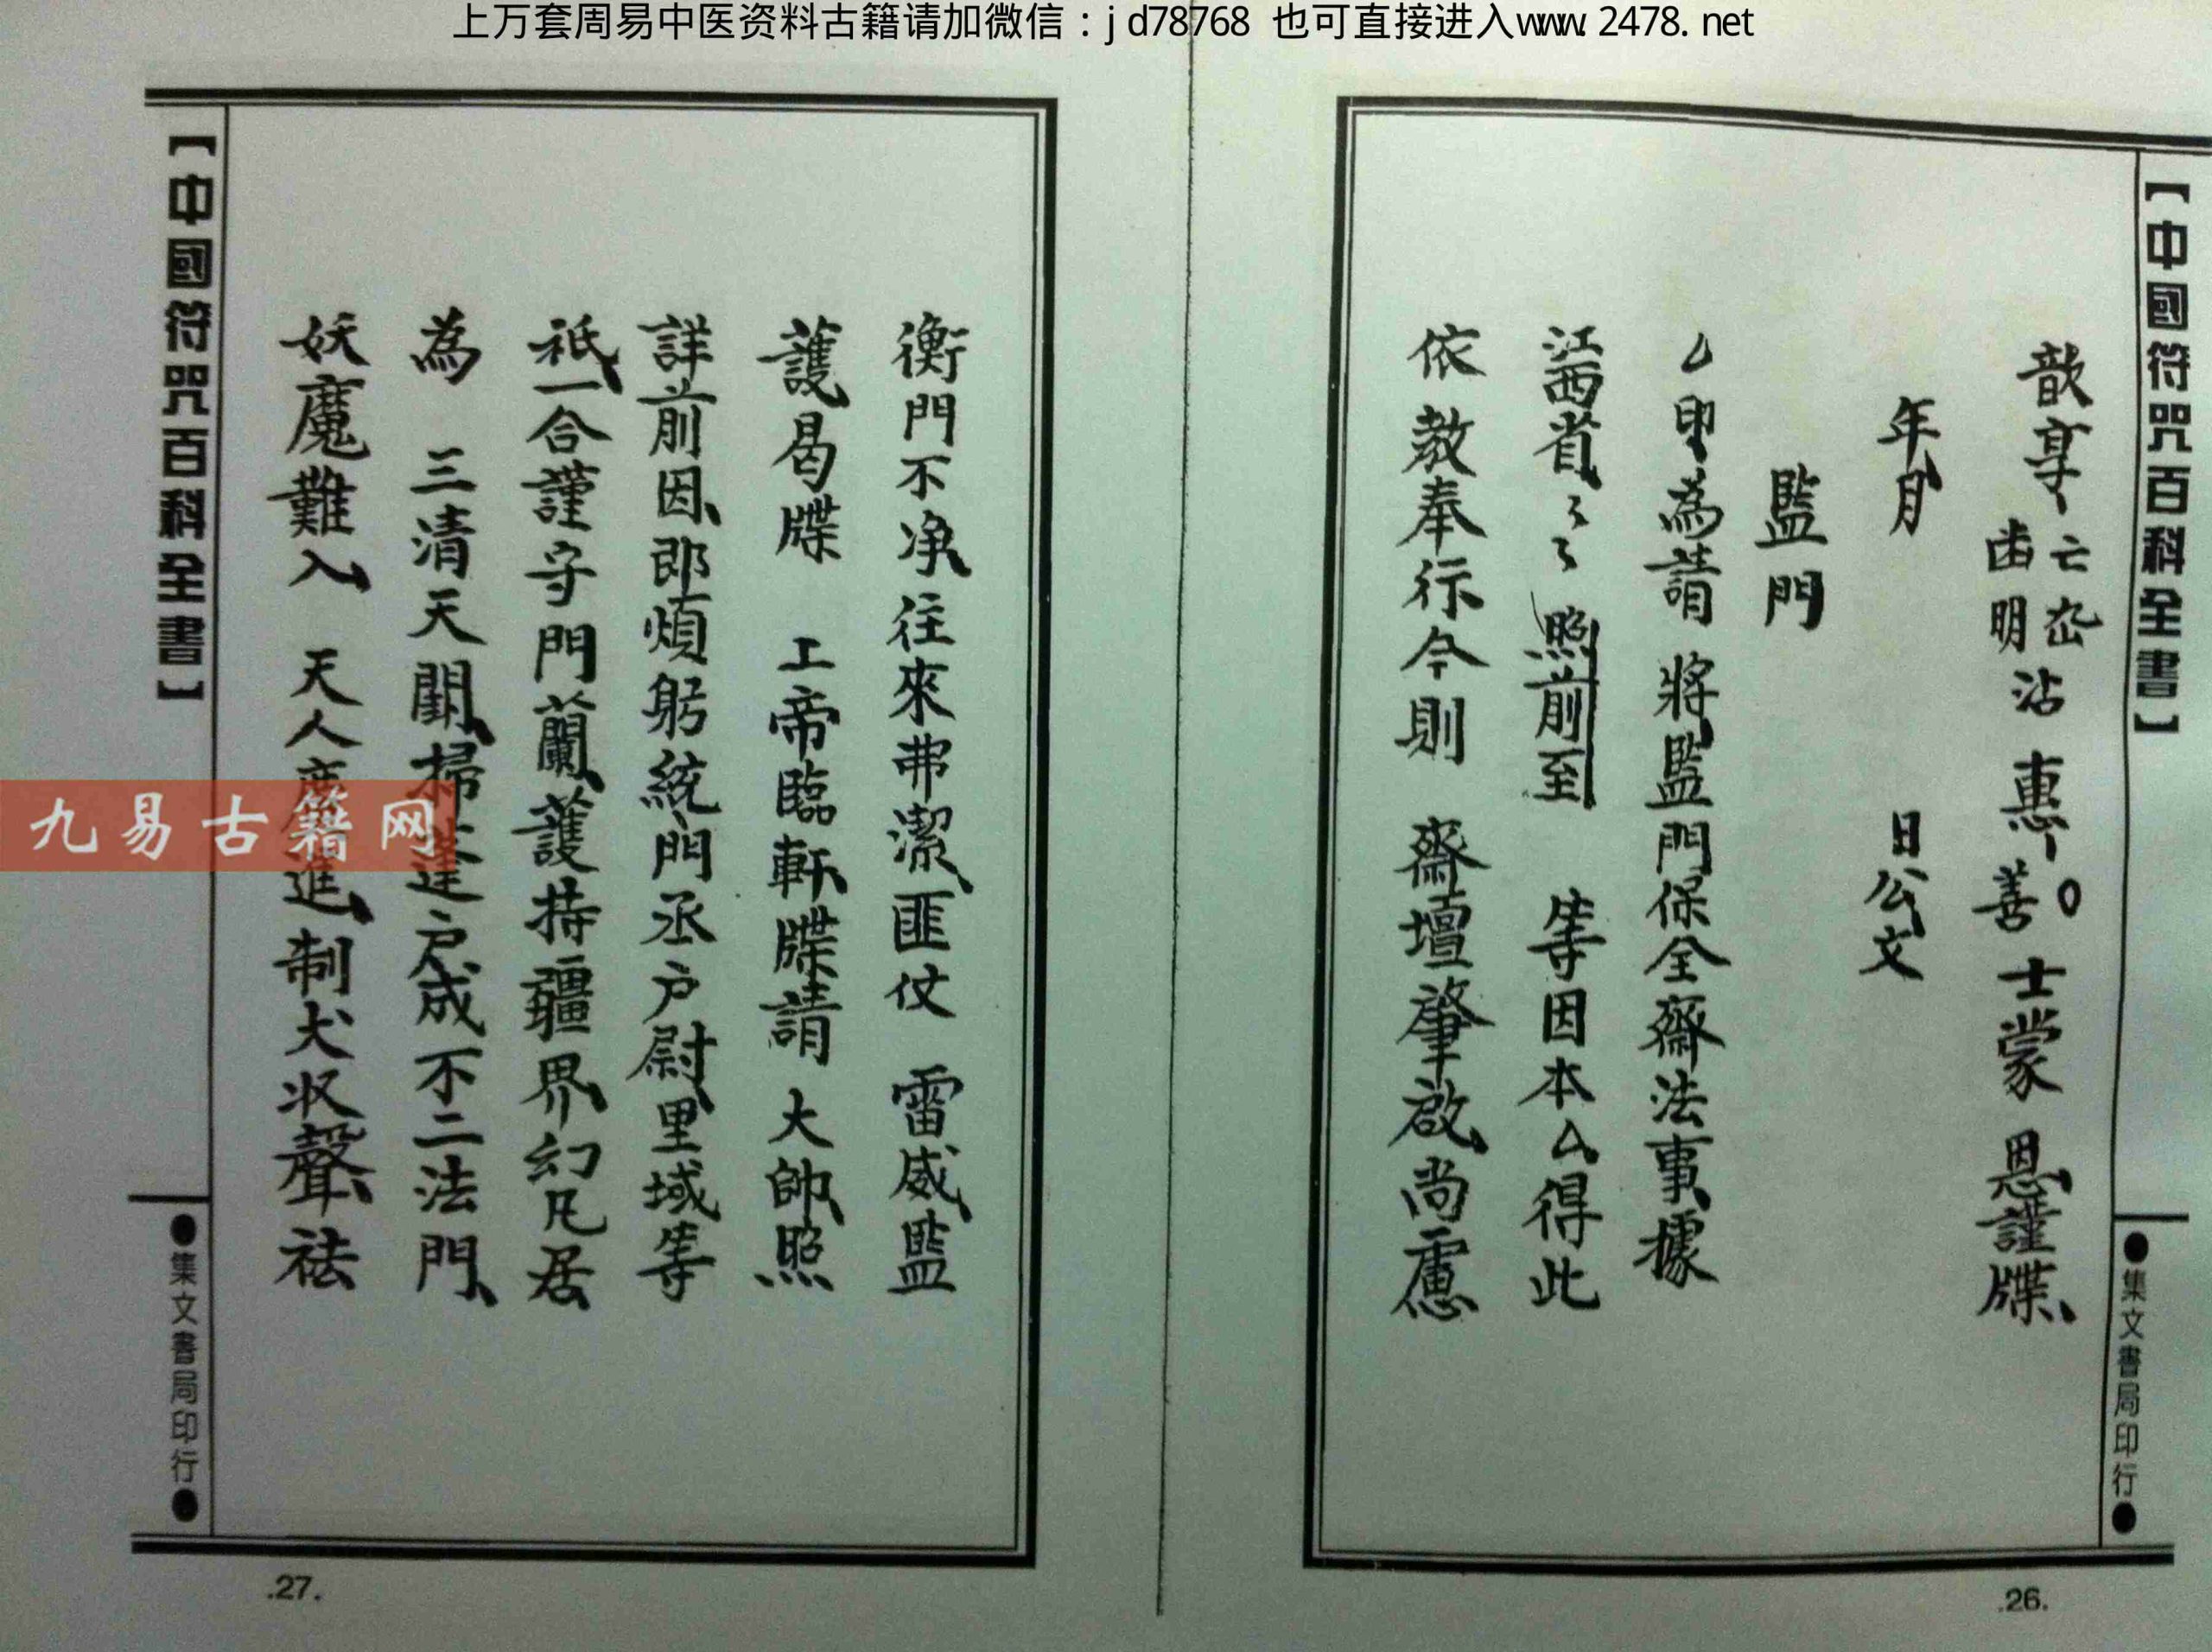 上万套周易中医资料古籍请加微信：jd78768 也可直接进入www.2478.net
【中國符咒百科全書】
●集文書局印行●
歆享亡
明沾惠善士蒙 恩謹牒
年月 日公文
監門
甲為請 將監門保全齋法事據
江西省〻〻照前至 等因本厶得此
依教奉行令則 齋壇肇啟尚慮
.26.
衡門不净往來弗潔匪仗 雷威監
護曷牒 上帝臨軒牒請 大帥照
詳前因即煩躬統門丞户尉里域等
祇一合謹守門蘭護持疆界幻凡居
為 三清天闕掃 戶成不二法門
妖魔難入 天人 進制犬収聲祛
【中國符咒百科全書】
●集文書局印行●
.27.
九易古籍网